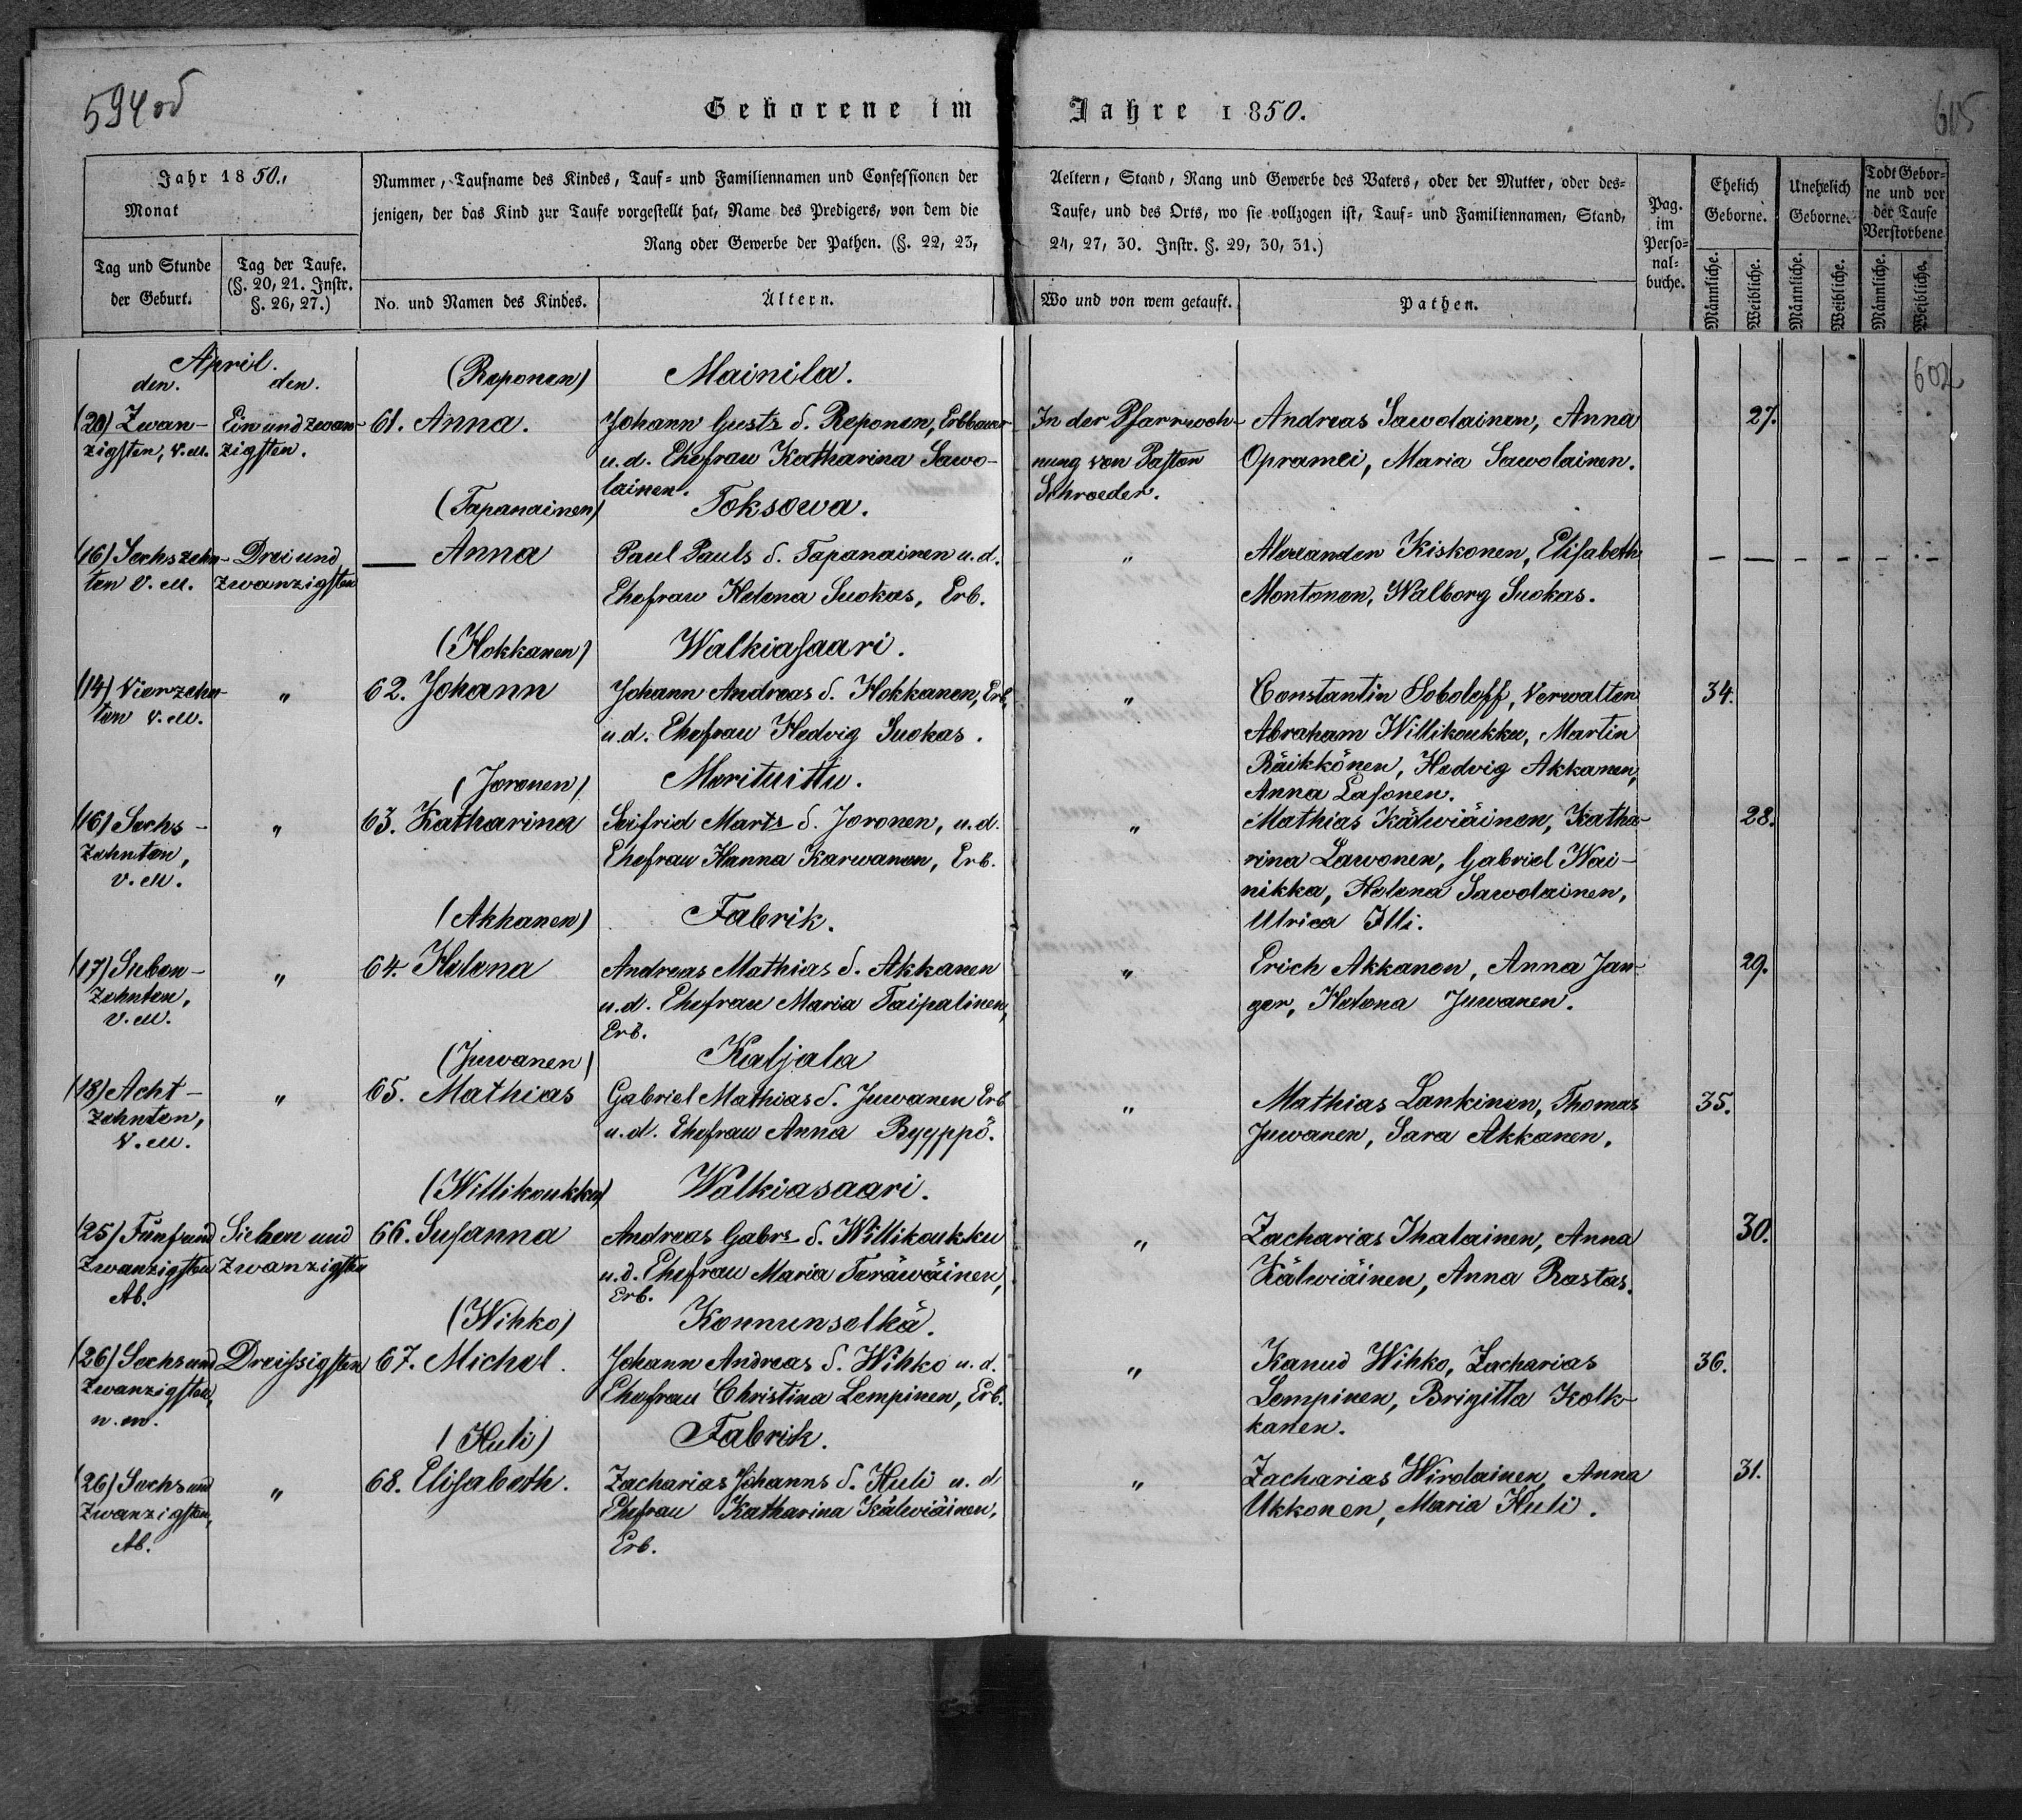 594 od
Geborene im Jahre 1850.
605
Jahr 1850.,
Monat
Tag und Stunde
der Geburt.
Tag der Taufe.
(§. 20, 21. Instr.
§. 26, 27.)
Nummer, Taufname des Kindes, Tauf= und Familiennamen und Confessionen der
jenigen, der das Kind zur Taufe vorgestellt hat, Name des Predigers, von dem die
Rang oder Gewerbe der Pathen. (§. 22, 23,
No. und Namen des Kindes.
Ältern.
Aeltern, Stand, Rang und Gewerbe des Vaters, oder der Mutter, oder des=
Taufe, und des Orts, wo sie vollzogen ist, Tauf= und Familiennamen, Stand,
24, 27, 30. Instr. §. 29, 30, 31.)
Wo und von wem getauft.
Pathen.
Pag.
im
Perso=
nal=
buche.
Ehelich
Geborne.
Unehelich
Geborne.
Todt Gebor=
ne und vor
der Taufe
Verstorbene
Männliche.
Weibliche.
Männliche.
Weibliche.
Männliche.
Weibliche.
602
April.
den.
den.
(Reponen)
Mainila.
(20) Zwan-
zigsten, V. M.
Ein und zwan-
zigsten.
61. Anna.
Johann Gusts S. Reponen, Erbbauer
u. d. Ehefrau Katharina Sawo-
lainen.
In der Pfarrwoh-
nung von Pastor
Schroeder.
Andreas Sawolainen, Anna
Opramei, Maria Sawolainen.
27.
(Tapanainen)
Toksowa.
(16) Sechszehn-
ten V. M.
Drei und
zwanzigsten
— Anna
Paul Pauls S. Tapanainen u. d.
Ehefrau Helena Suokas, Erb.
"
Alexander Kiskonen, Elisabeth
Montonen, Walborg Suokas.
— — — — — —
(Hokkanen)
Walkiasaari.
(14) Vierzehn-
ten V. M.
"
62. Johann
Johann Andreas S. Hokkanen, Erb,
u. d. Ehefrau Hedvig Suokas.
"
Constantin Soboleff, Verwalter
Abraham Willikoukku, Martin
Räikkönen, Hedvig Akkanen,
Anna Lasonen.
34.
(Joronen)
Morituittu.
(16) Sechs-
zehnten,
V. M.
"
63. Katharina
Seifrid Marts S. Joronen, u. d.
Ehefrau Hanna Karwanen, Erb.
"
Mathias Kälwiäinen, Katha-
rina Lawonen, Gabriel Wai-
nikka, Helena Sawolainen,
Ulrica Illi.
28.
(Akkanen)
Fabrik.
(17) Sieben-
zehnten,
V. M.
"
64. Helena
Andreas Mathias S. Akkanen
u. d. Ehefrau Maria Taipalinen,
Erb.
"
Erich Akkanen, Anna Jan-
ger, Helena Juwanen.
29.
(Juwanen)
Kaljala
(18) Acht-
zehnten,
V. M.
"
65. Mathias
Gabriel Mathias S. Juwanen Erb
u. d. Ehefrau Anna Ryyppö.
"
Mathias Lankinen, Thomas
Juwanen, Sara Akkanen.
35.
(Willikoukku)
Walkiasaari.
(25) Fünfund
Zwanzigsten
Ab.
Sieben und
Zwanzigsten
66. Susanna
Andreas Gabrs S. Willikoukku
u. d. Ehefrau Maria Teräwäinen,
Erb.
"
Zacharias Ihalainen, Anna
Kälwiäinen, Anna Rastas.
30.
(Wihko)
Konnunselkä.
(26) Sechsund
Zwanzigsten,
n. m.
Dreissigsten
67. Michel.
Johann Andreas S. Wihko u. d.
Ehefrau Christina Lempinen, Erb.
"
Kanud Wihko, Zacharias
Lempinen, Brigitta Kolk-
kanen.
36.
(Huli)
Fabrik.
(26) Sechsund
Zwanzigsten,
Ab.
"
68. Elisabeth.
Zacharias Johanns S. Huli u. d
Ehefrau Katharina Kälwiäinen,
Erb.
"
Zacharias Wirolainen, Anna
Ukkonen, Maria Huli.
31.